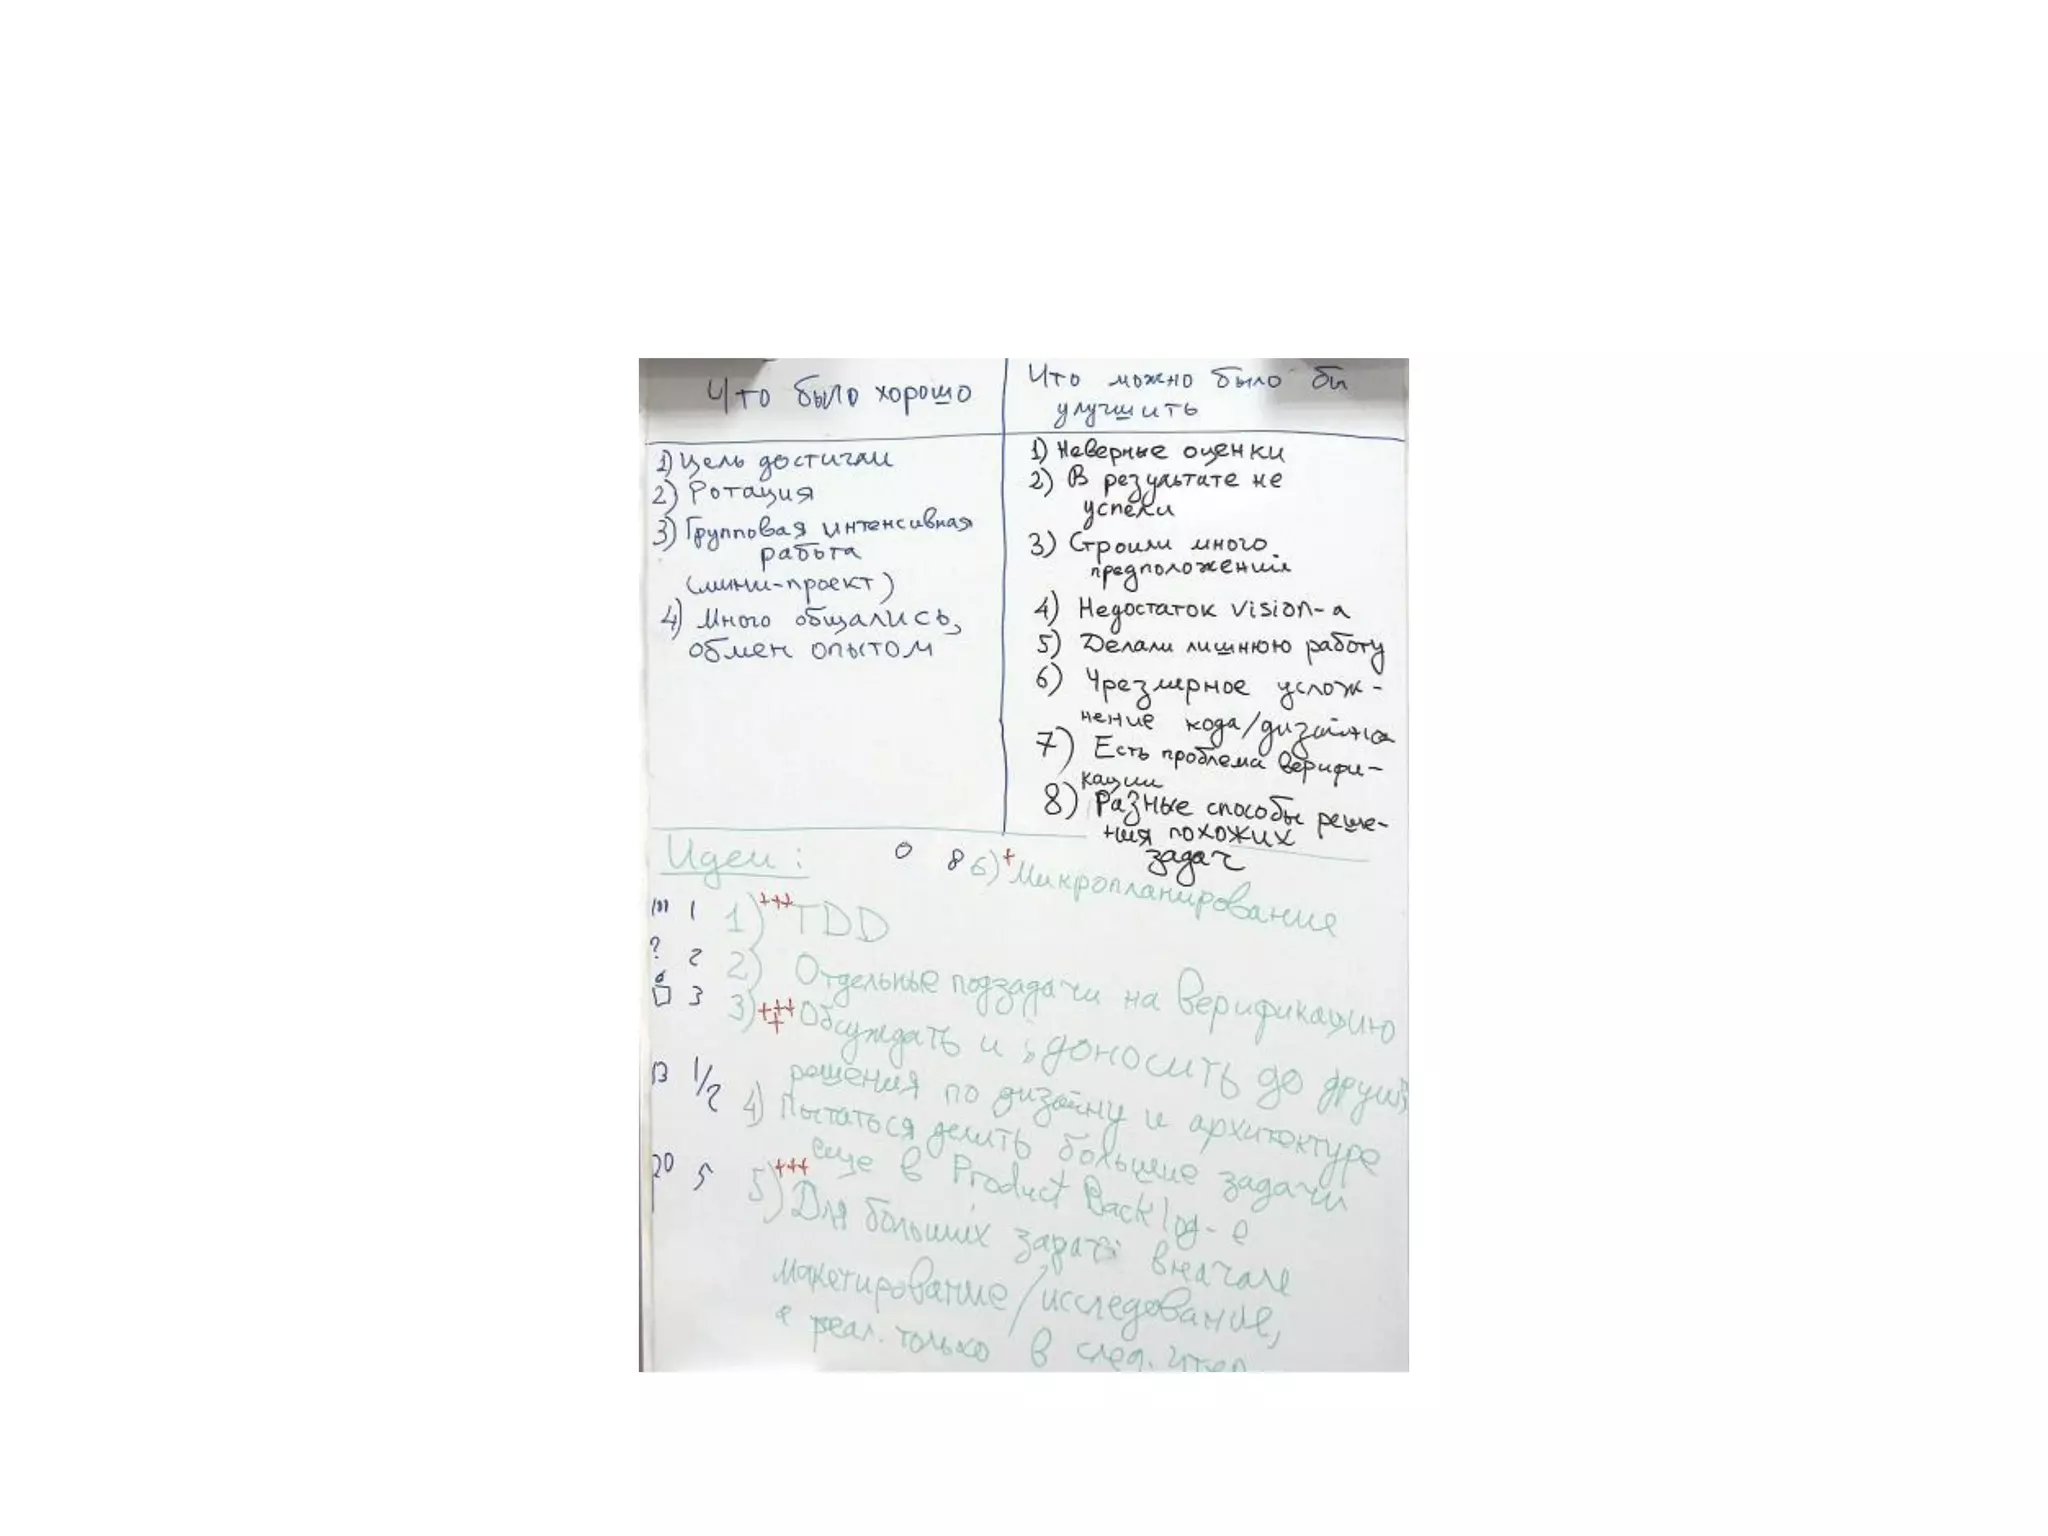 Что было хорошо
1) Цель достигли
2) Ротация
3) Групповая интенсивная
работа
(мини-проект)
4) Много общались,
обмен опытом
Что можно было бы
улучшить
1) Неверные оценки
2) В результате не
успели
3) Строили много
предположений
4) Недостаток vision-а
5) Делали лишнюю работу
6) Чрезмерное услож-
нение кода/дизайна
7) Есть проблема верифи-
кации
8) Разные способы реше-
ния похожих
задач
Идеи:
0 8 6) + Микропланирование
1 1) +++ TDD
? 2 2) Отдельные подзадачи на верификацию
3 3) ++++ Обсуждать и доносить до других
решения по дизайну и архитектуре
13 1/2 4) Пытаться делить большие задачи
еще в Product Backlog-е
20 5 5) +++ Для больших задач вначале
макетирование/исследование,
а реал. только в след. итер